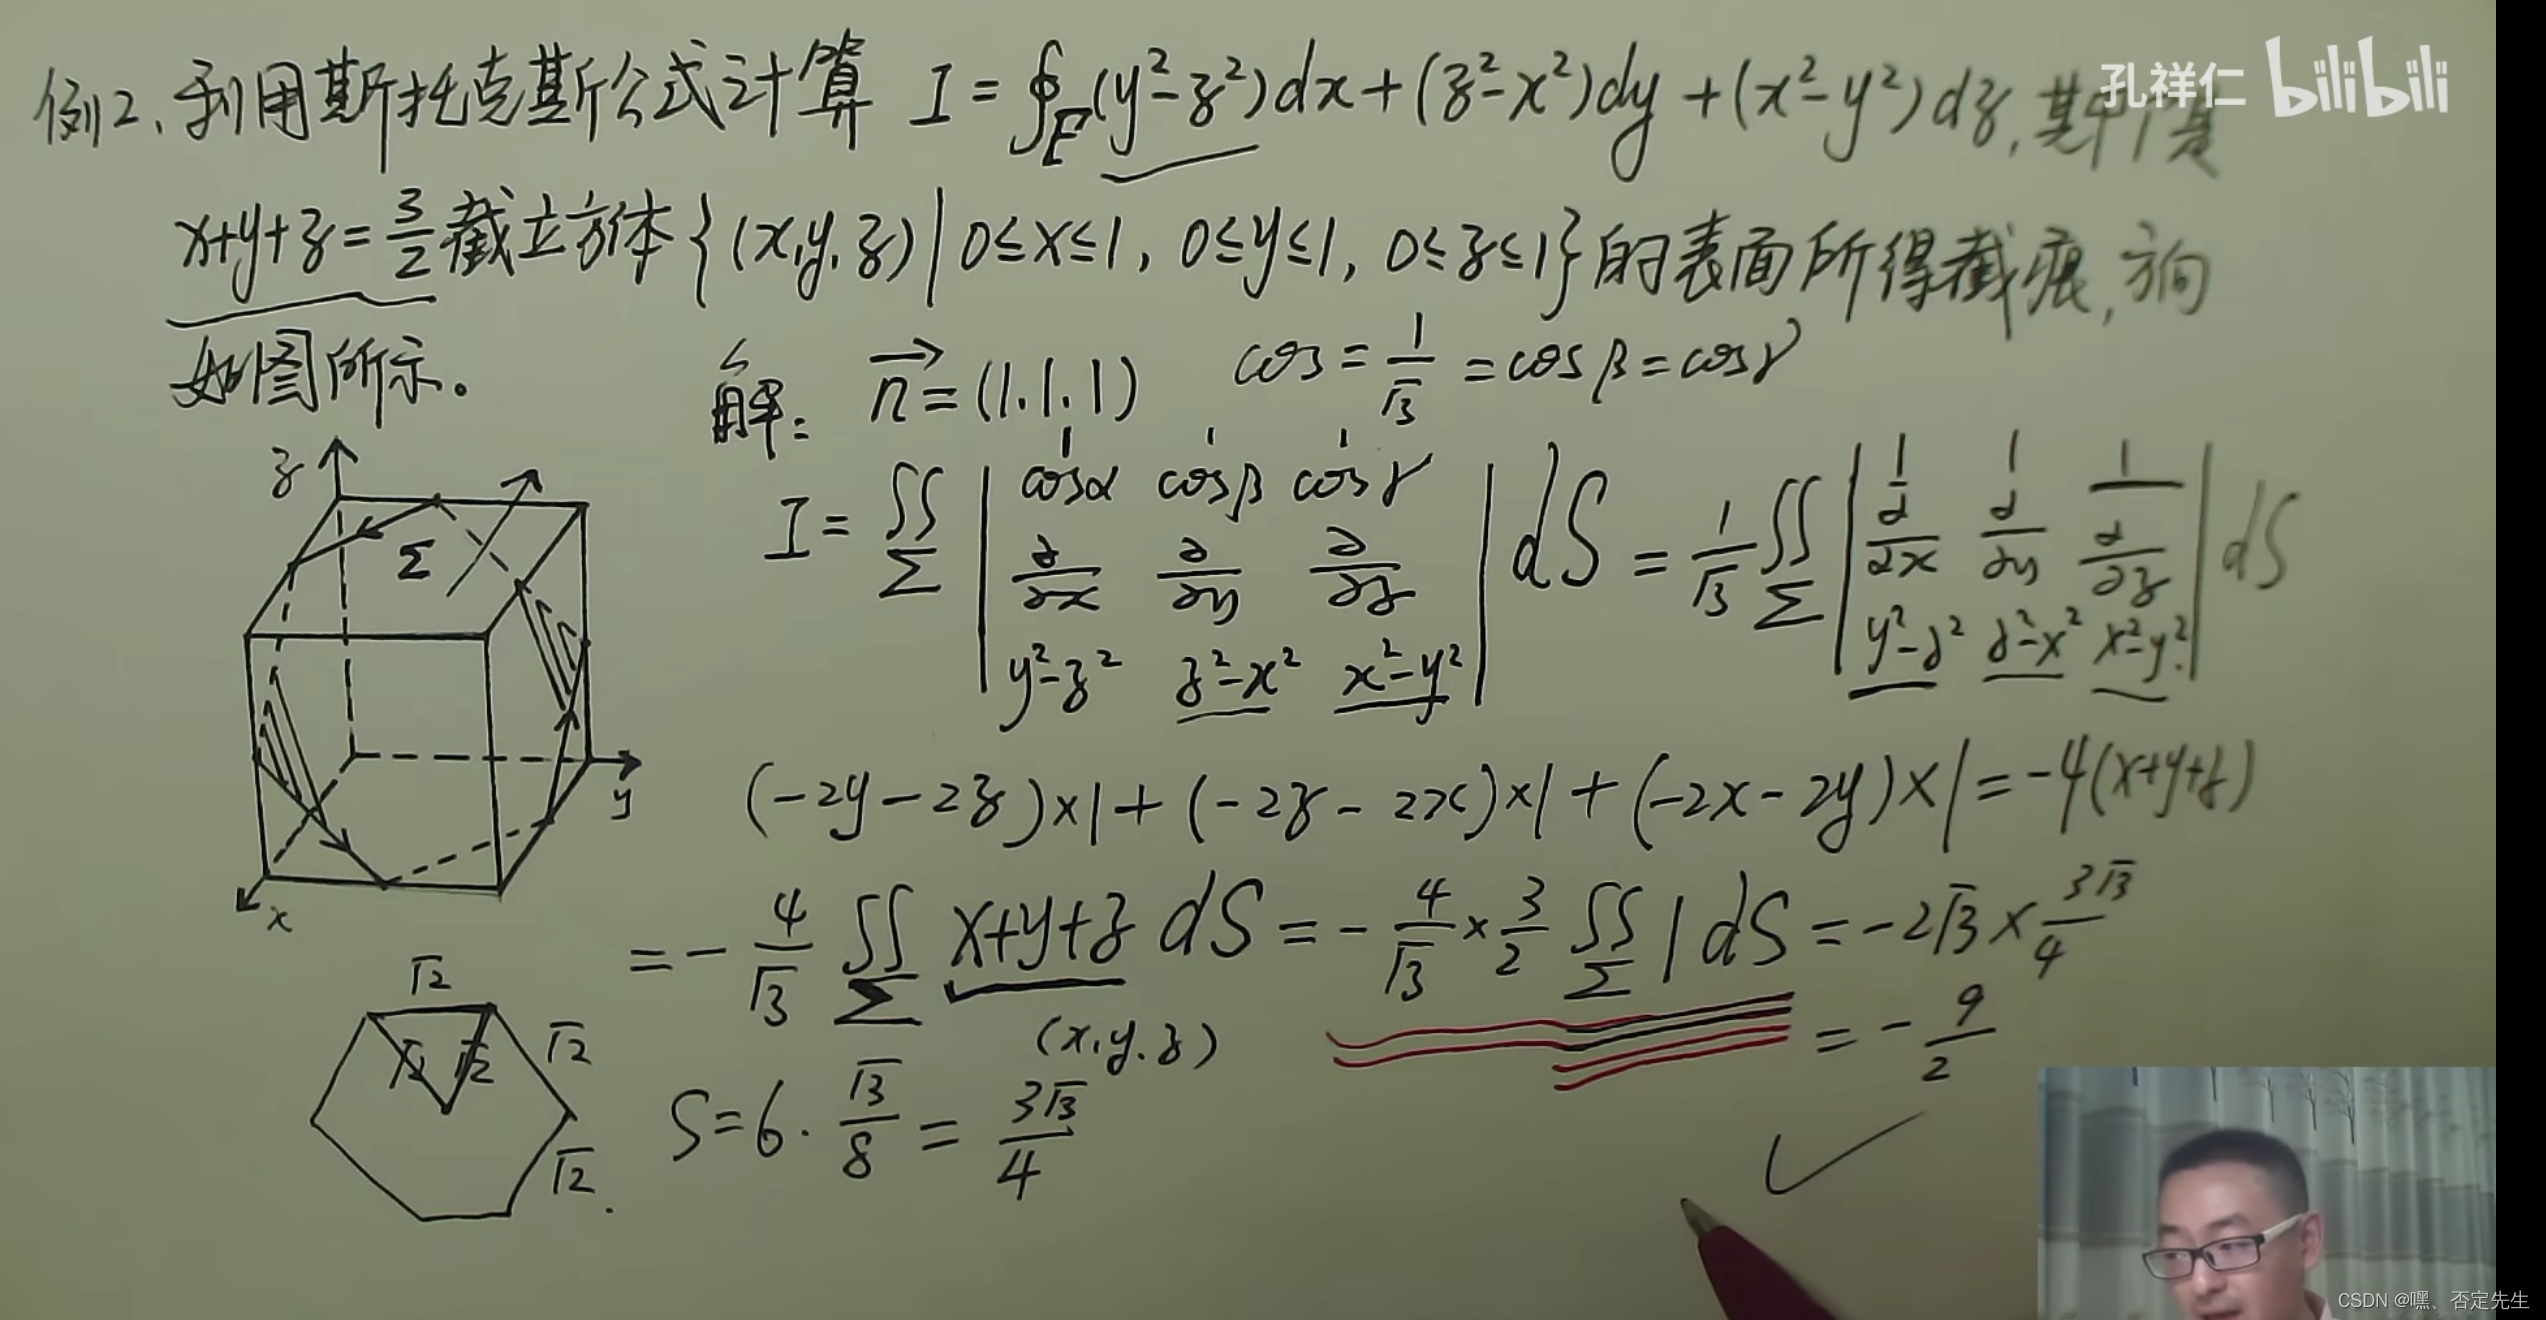 例2、利用斯托克斯公式计算 I = ∮_Γ (y²-z²)dx+(z²-x²)dy+(x²-y²)dz, 其中Γ是
孔祥仁 bilibili
x+y+z=3/2 截立方体{(x,y,z)|0≤x≤1, 0≤y≤1, 0≤z≤1}的表面所得截痕, 方向
如图所示。
解: n⃗=(1.1.1) cos=1/√3=cosβ=cosγ
1 1 1
I=∬_Σ |cosα cosβ cosγ; ∂/∂x ∂/∂y ∂/∂z; y²-z² z²-x² x²-y²| dS = 1/√3 ∬_Σ |1 1 1; ∂/∂x ∂/∂y ∂/∂z; y²-z² z²-x² x²-y²| dS
(-2y-2z)×1+(-2z-2x)×1+(-2x-2y)×1=-4(x+y+z)
=-4/√3 ∬_Σ x+y+z dS=-4/√3×3/2 ∬_Σ 1 dS=-2√3×3√3/4
(x,y,z)
=-9/2
S=6·√3/8=3√3/4
z
Σ
y
x
√2
√2 √2 √2
√2.
CSDN @嘿、否定先生